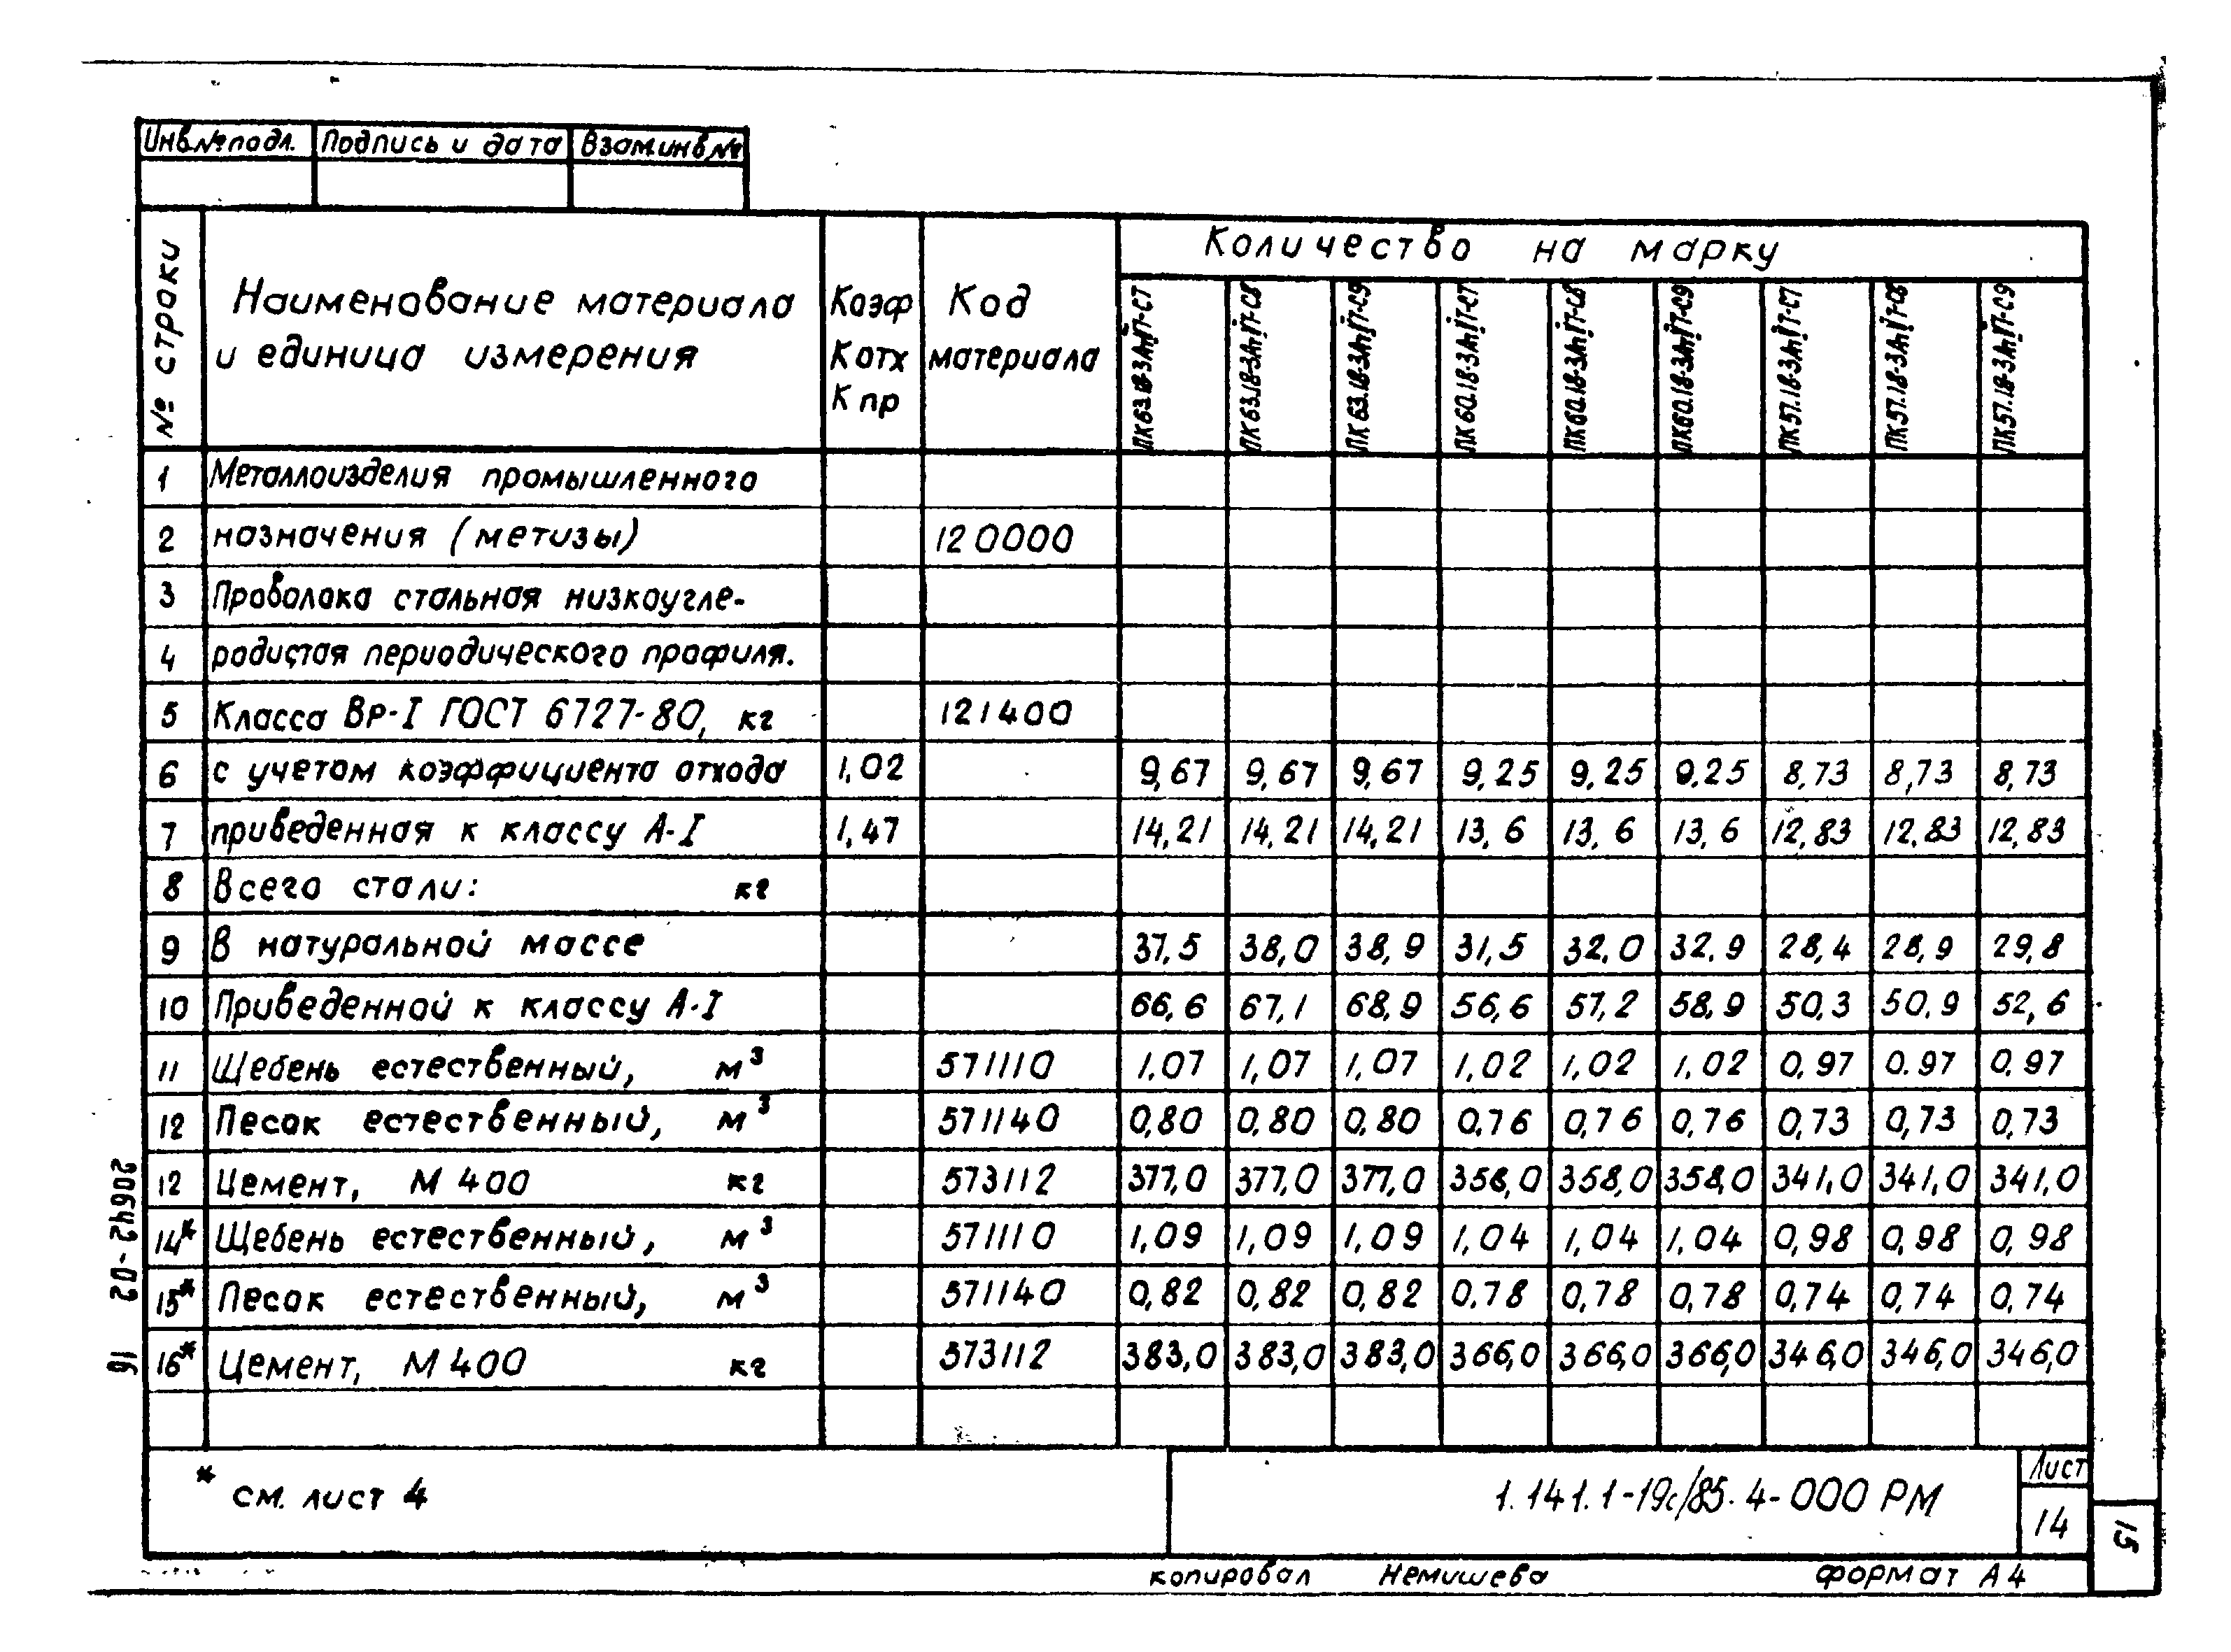 Инв.№ подл. Подпись и дата Взам.инв.№
№ строки Наименование материала и единица измерения Коэф К отх К пр Код материала Количество на марку
ПК63.18-3АтIVТ-С7 ПК63.18-3АтIVТ-С8 ПК63.18-3АтIVТ-С9 ПК60.18-3АтIVТ-С7 ПК60.18-3АтIVТ-С8 ПК60.18-3АтIVТ-С9 ПК57.18-3АтIVТ-С7 ПК57.18-3АтIVТ-С8 ПК57.18-3АтIVТ-С9
1 Металлоизделия промышленного
2 назначения (метизы) 120000
3 Проволока стальная низкоугле-
4 родистая периодического профиля.
5 Класса Вр-I ГОСТ 6727-80, кг 121400
6 с учетом коэффициента отхода 1,02 9,67 9,67 9,67 9,25 9,25 9,25 8,73 8,73 8,73
7 приведенная к классу А-I 1,47 14,21 14,21 14,21 13,6 13,6 13,6 12,83 12,83 12,83
8 Всего стали: кг
9 В натуральной массе 37,5 38,0 38,9 31,5 32,0 32,9 28,4 28,9 29,8
10 Приведенной к классу А-I 66,6 67,1 68,9 56,6 57,2 58,9 50,3 50,9 52,6
11 Щебень естественный, м³ 571110 1,07 1,07 1,07 1,02 1,02 1,02 0,97 0.97 0,97
12 Песок естественный, м³ 571140 0,80 0,80 0,80 0,76 0,76 0,76 0,73 0,73 0,73
12 Цемент, М 400 кг 573112 377,0 377,0 377,0 358,0 358,0 358,0 341,0 341,0 341,0
14* Щебень естественный, м³ 571110 1,09 1,09 1,09 1,04 1,04 1,04 0,98 0,98 0,98
15* Песок естественный, м³ 571140 0,82 0,82 0,82 0,78 0,78 0,78 0,74 0,74 0,74
16* Цемент, М 400 кг 573112 383,0 383,0 383,0 366,0 366,0 366,0 346,0 346,0 346,0
* см. лист 4
1.141.1-19с/85.4-000 РМ
Лист
14
15
копировал Немишева формат А4
20642-02 16